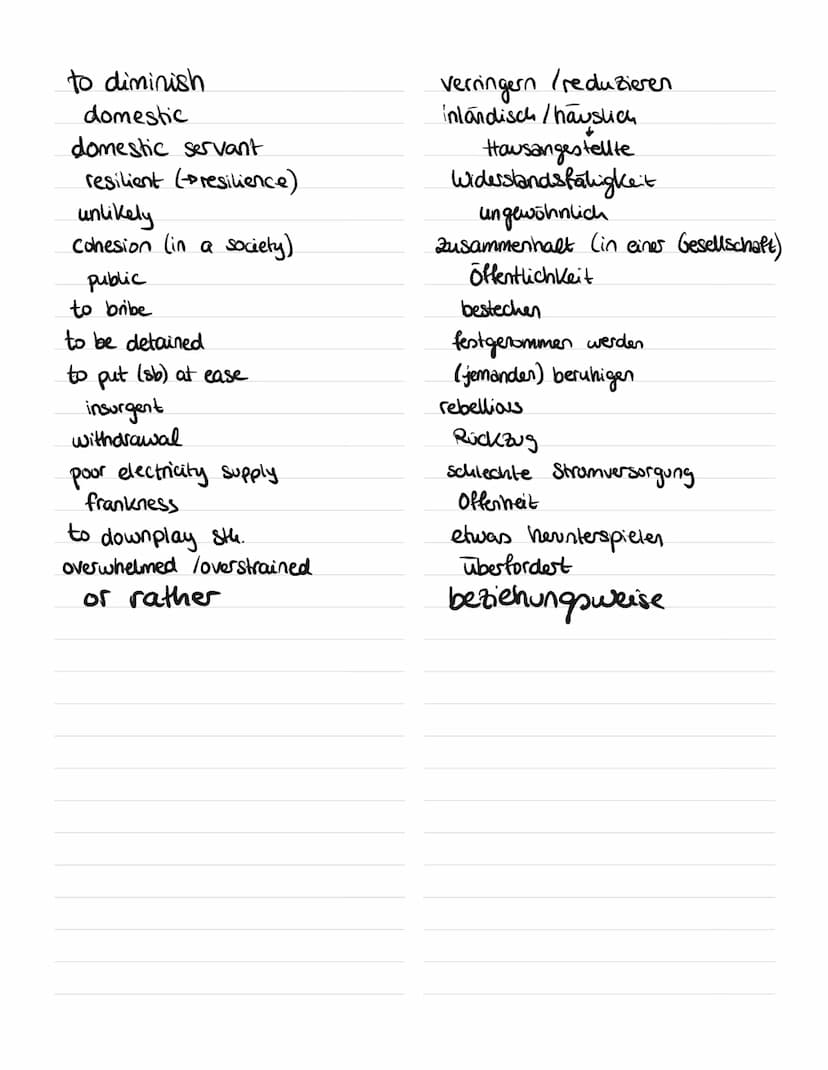 to diminish verringern / reduzieren
domestic inländisch / häuslich
domestic servant Hausangestellte
resilient (→ resilience) Widerstandsfähigkeit
unlikely ungewöhnlich
cohesion (in a society) Zusammenhalt (in einer Gesellschaft)
public Öffentlichkeit
to bribe bestechen
to be detained festgenommen werden
to put (sb) at ease (jemanden) beruhigen
insurgent rebellious
withdrawal Rückzug
poor electricity supply schlechte Stromversorgung
frankness Offenheit
to downplay sth. etwas herunterspielen
overwhelmed / overstrained überfordert
or rather beziehungsweise